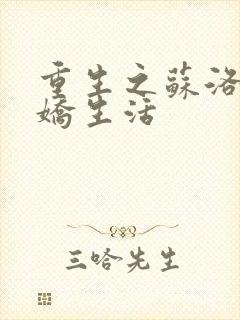 重生之蘇洛
嬌生活
三哈先生